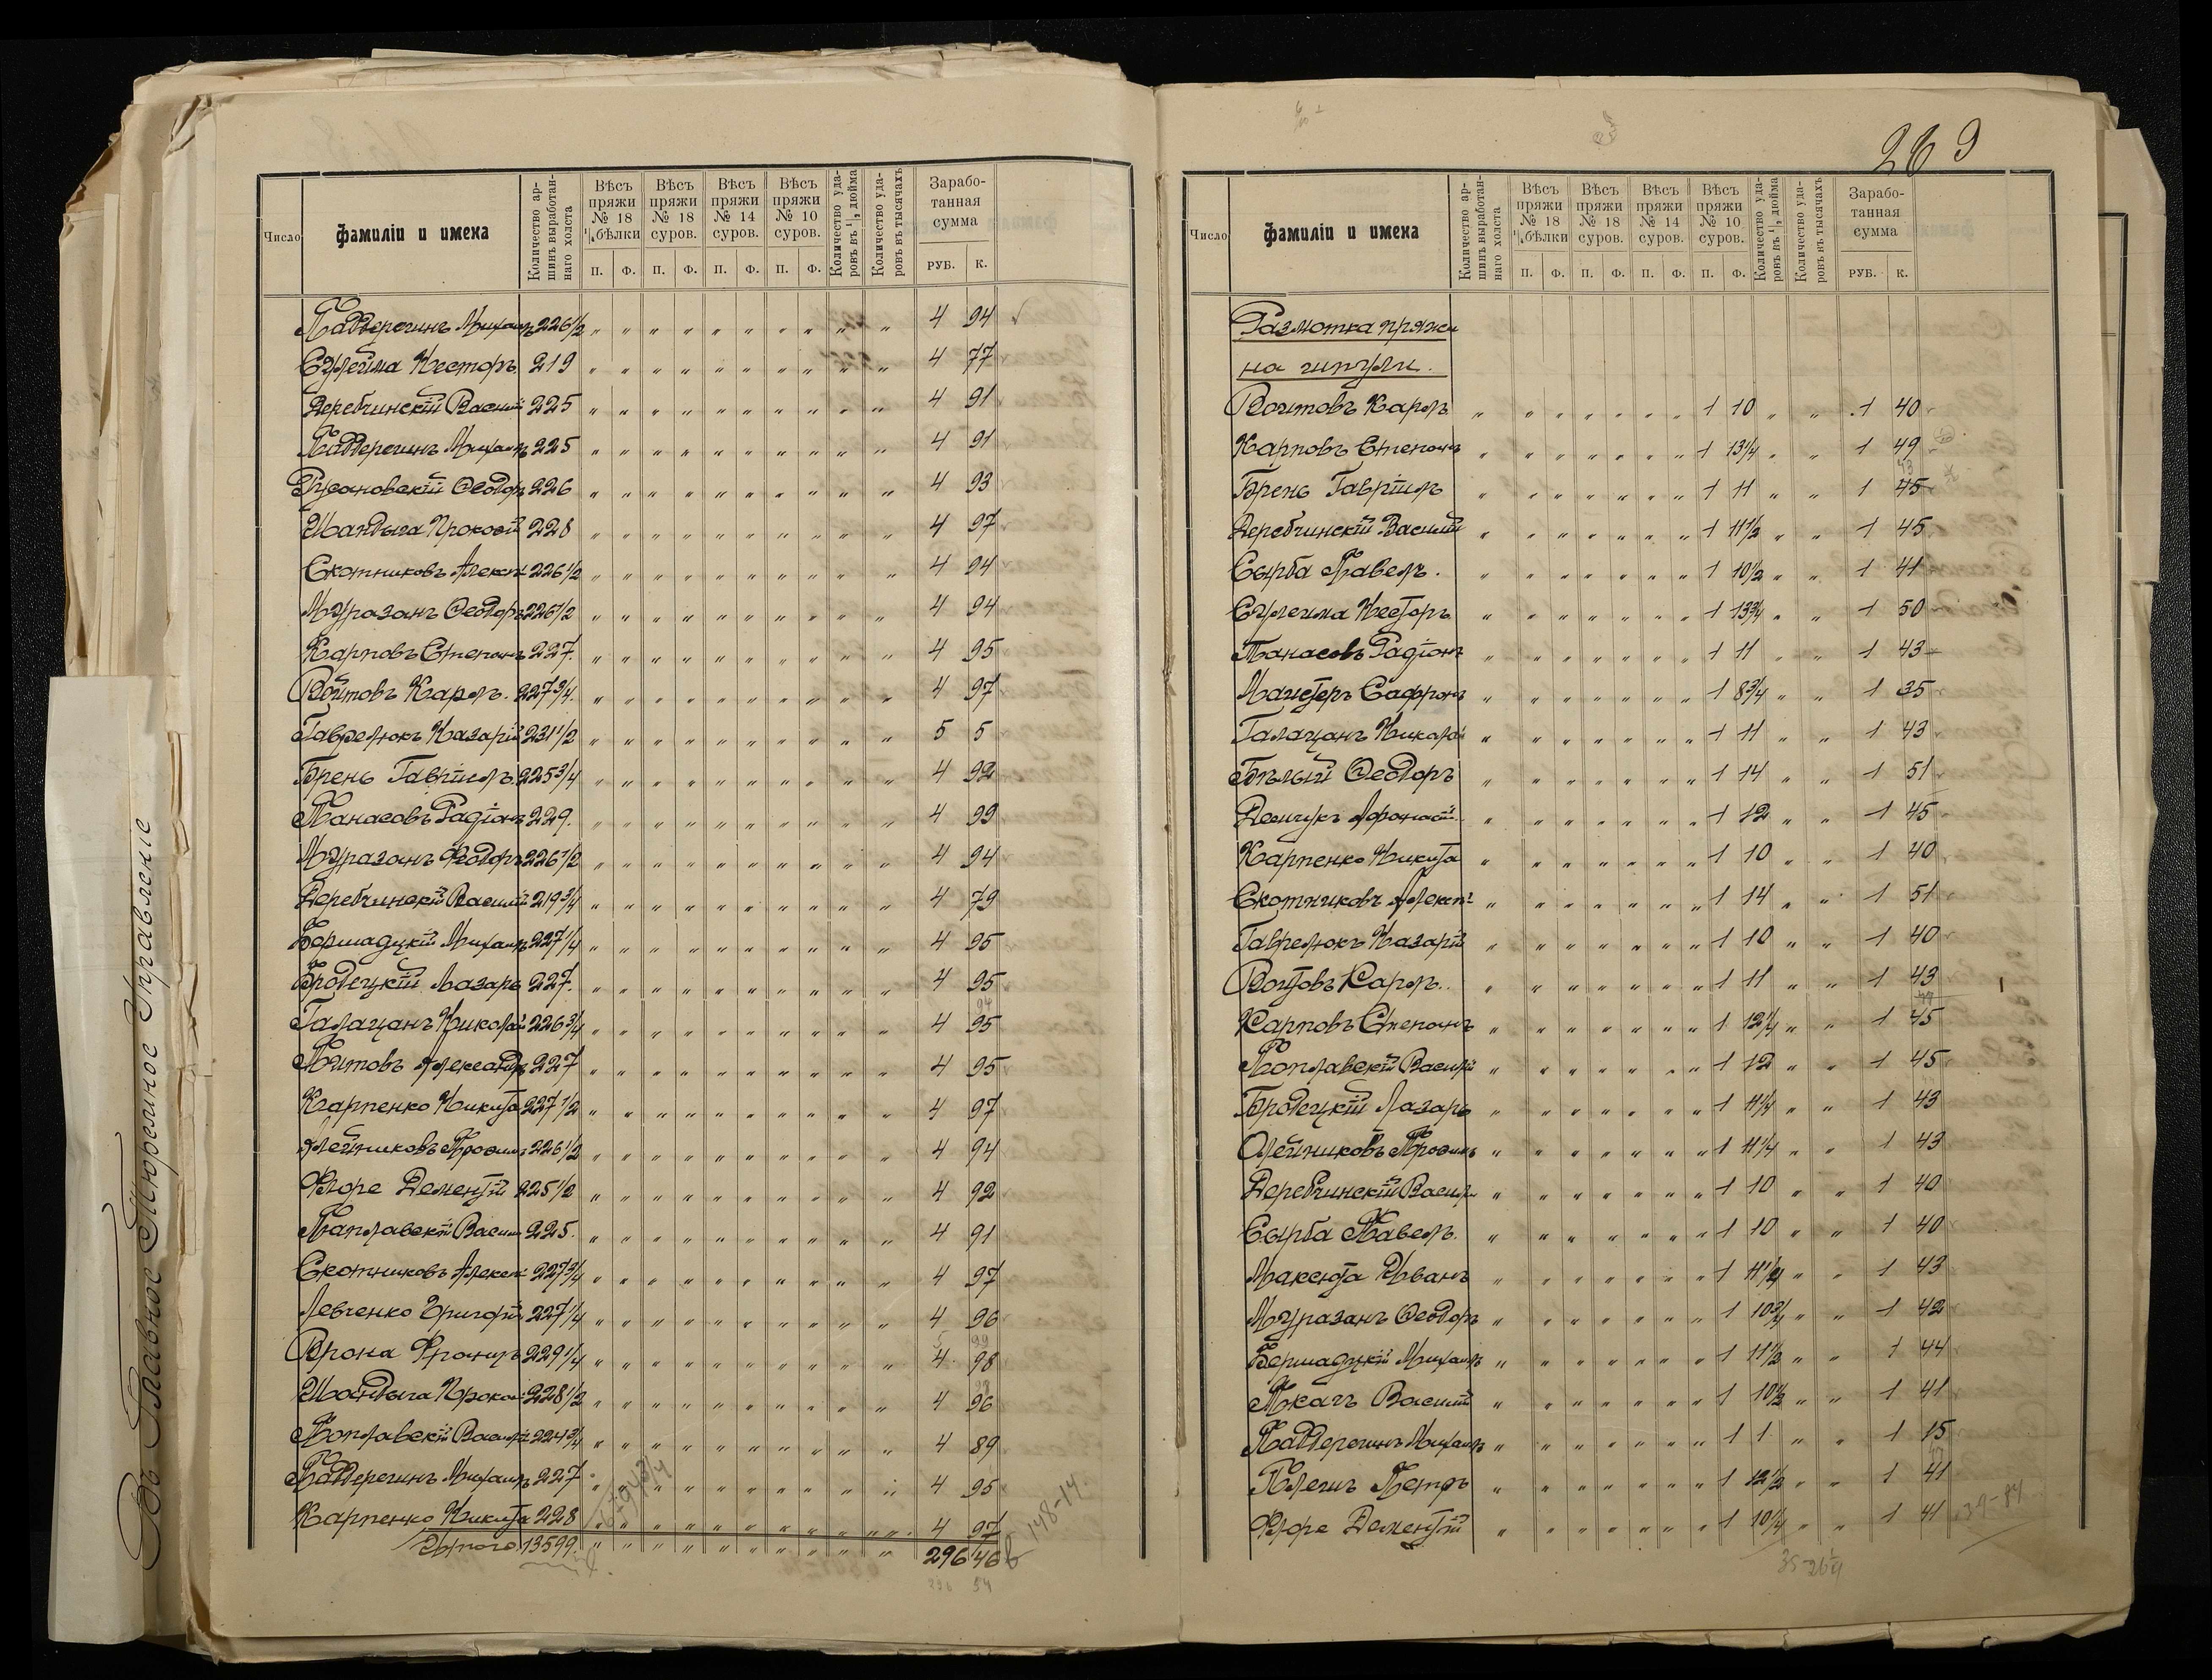 Въ Главное Тюремное Управленіе
Число
фамиліи и имена
Количество аршинъ выработаннаго холста
Вѣсъ пряжи № 18 ½ бѣлки
Вѣсъ пряжи № 18 суров.
Вѣсъ пряжи № 14 суров.
Вѣсъ пряжи № 10 суров.
Количество ударовъ въ ½ дюйма
Количество ударовъ въ тысячахъ
Заработанная сумма
П. Ф. П. Ф. П. Ф. П. Ф. РУБ. К.
Паддерегинъ Михаилъ 226 1/2 " " " " " " " " " " 4 94
Сулейма Несторъ 219 " " " " " " " " " " 4 77
Деребчинскій Василій 225 " " " " " " " " " " 4 91
Паддерегинъ Михаилъ 225 " " " " " " " " " " 4 91
Ѳеодоръ 226 " " " " " " " " " " 4 93
Шандыга Прокофій 228 " " " " " " " " " " 4 97
Скотниковъ Алексѣй 226 1/2 " " " " " " " " " " 4 94
Муразанъ Ѳеодоръ 226 1/2 " " " " " " " " " " 4 94
Карповъ Степанъ 227. " " " " " " " " " " 4 95
Войтовъ Карлъ. 227 3/4. " " " " " " " " " " 4 97
Гаврелюкъ Назарій 231 1/2 " " " " " " " " " " 5 5
Брень Гавріилъ 225 3/4 " " " " " " " " " " 4 92
Танасовъ Радіонъ 229. " " " " " " " " " " 4 99
Муразанъ Ѳеодоръ 226 1/2 " " " " " " " " " " 4 94
Деребчинскій Василій 219 3/4 " " " " " " " " " " 4 79
Бершадцкій Михаилъ 227 1/4 " " " " " " " " " " 4 95
Бродецкій Лазарь 227. " " " " " " " " " " 4 95
Галацанъ Николай 226 3/4 " " " " " " " " " " 4 95
Александръ 227 " " " " " " " " " " 4 95
Карпенко Никита 227 1/2 " " " " " " " " " " 4 97
Алейниковъ Трофимъ 226 1/2 " " " " " " " " " " 4 94
Флоре Дементій 225 1/2 " " " " " " " " " " 4 92
Паплавскій Василій 225. " " " " " " " " " " 4 91
Скотниковъ Алексѣй 227 3/4 " " " " " " " " " " 4 97
Левченко Григорій 227 1/4 " " " " " " " " " " 4 96
Врона Францъ 229 1/4 " " " " " " " " " " 4 98
Шандыга Прокоф. 228 1/2 " " " " " " " " " " 4 96
Поплавскій Василій 224 3/4 " " " " " " " " " " 4 89
Паддерегинъ Михаилъ 227 " " " " " " " " " " 4 95
Карпенко Никита 228 " " " " " " " " " " 4 97
Итого 13599. " " " " " " " " " " 296 46
148-14
269
Число
фамиліи и имена
Количество аршинъ выработаннаго холста
Вѣсъ пряжи № 18 ½ бѣлки
Вѣсъ пряжи № 18 суров.
Вѣсъ пряжи № 14 суров.
Вѣсъ пряжи № 10 суров.
Количество ударовъ въ ½ дюйма
Количество ударовъ въ тысячахъ
Заработанная сумма
П. Ф. П. Ф. П. Ф. П. Ф. РУБ. К.
Размотка пряжи
на шпули.
Войтовъ Карлъ " " " " " " " 1 10 " " 1 40
Карповъ Степанъ " " " " " " " 1 13 1/4 " " 1 49
Брень Гавріилъ " " " " " " " 1 11 " " 1 45
Деребчинскій Василій " " " " " " " 1 11 1/2 " " 1 45
Сырба Павелъ. " " " " " " " 1 10 1/2 " " 1 41
Сулейма Несторъ " " " " " " " 1 13 3/4 " " 1 50
Танасовъ Радіонъ " " " " " " " 1 11 " " 1 43
Мачстеръ Сафронъ " " " " " " " 1 8 3/4 " " 1 35
Галацанъ Николай " " " " " " " 1 11 " " 1 43
Бѣлый Ѳеодоръ " " " " " " " 1 14 " " 1 51
Афанасій " " " " " " " 1 12 " " 1 45
Карпенко Никита " " " " " " " 1 10 " " 1 40
Скотниковъ Алексѣй " " " " " " " 1 14 " " 1 51
Гаврелюкъ Назарій " " " " " " " 1 10 " " 1 40
Войтовъ Карлъ. " " " " " " " 1 11 " " 1 43
Карповъ Степанъ " " " " " " " 1 12 1/4 " " 1 45
Поплавскій Василій " " " " " " " 1 12 " " 1 45
Бродецкій Лазарь " " " " " " " 1 11 1/4 " " 1 43
Олейниковъ Трофимъ " " " " " " " 1 11 1/4 " " 1 43
Деребчинскій Василій " " " " " " " 1 10 " " 1 40
Сырба Павелъ. " " " " " " " 1 10 " " 1 40
Максюта Иванъ " " " " " " " 1 11 1/4 " " 1 43
Муразанъ Ѳеодоръ " " " " " " " 1 10 3/4 " " 1 42
Бершадцкій Михаилъ " " " " " " " 1 11 1/2 " " 1 44
Ткачъ Василій " " " " " " " 1 10 1/2 " " 1 41
Паддерегинъ Михаилъ " " " " " " " 1 1 " " 1 15
Петръ " " " " " " " 1 12 1/2 " " 1 41
Флоре Дементій " " " " " " " 1 10 1/4 " " 1 41
39-84